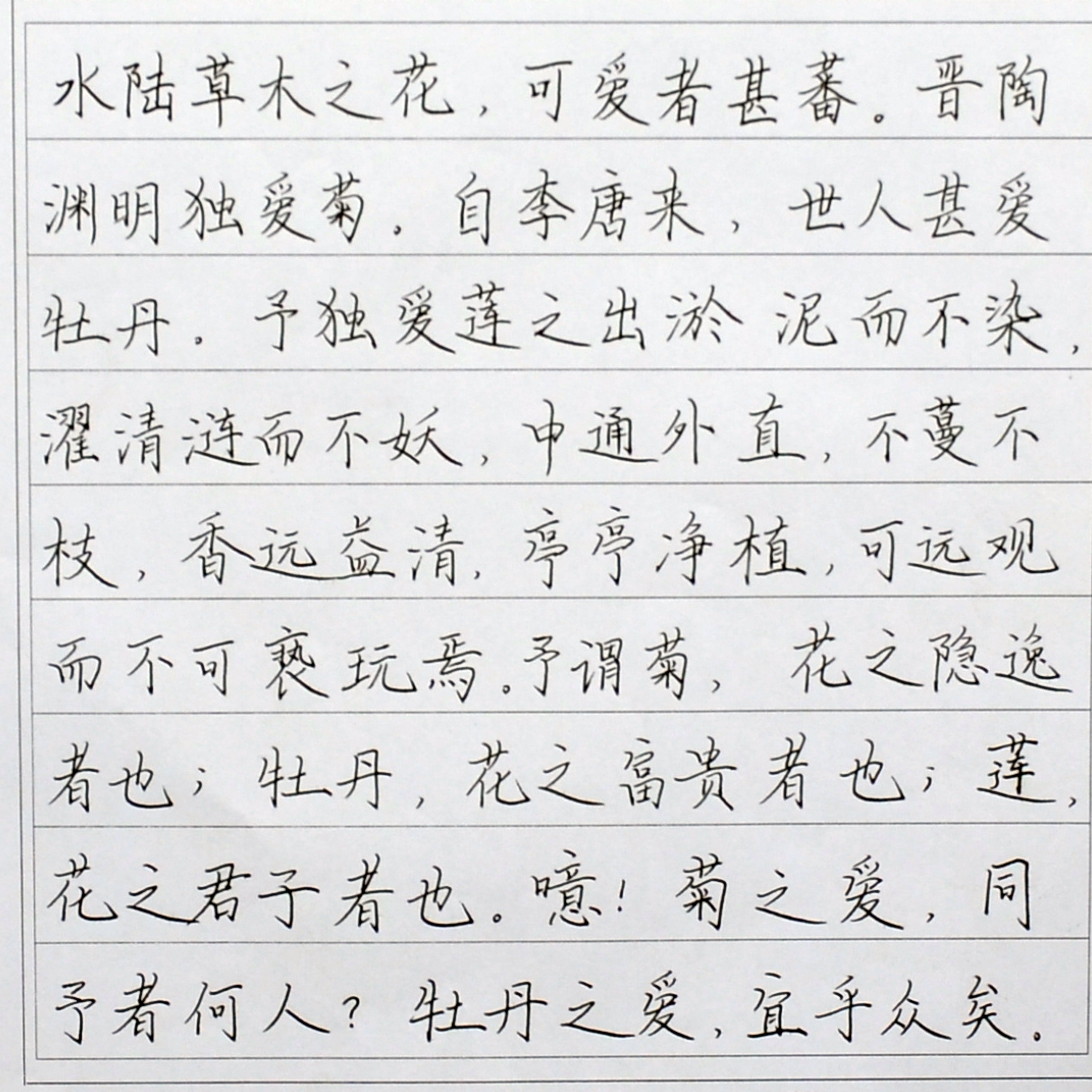 水陆草木之花，可爱者甚蕃。晋陶
渊明独爱菊。自李唐来，世人甚爱
牡丹。予独爱莲之出淤泥而不染，
濯清涟而不妖，中通外直，不蔓不
枝，香远益清，亭亭净植，可远观
而不可亵玩焉。予谓菊，花之隐逸
者也；牡丹，花之富贵者也；莲，
花之君子者也。噫！菊之爱，同
予者何人？牡丹之爱，宜乎众矣。